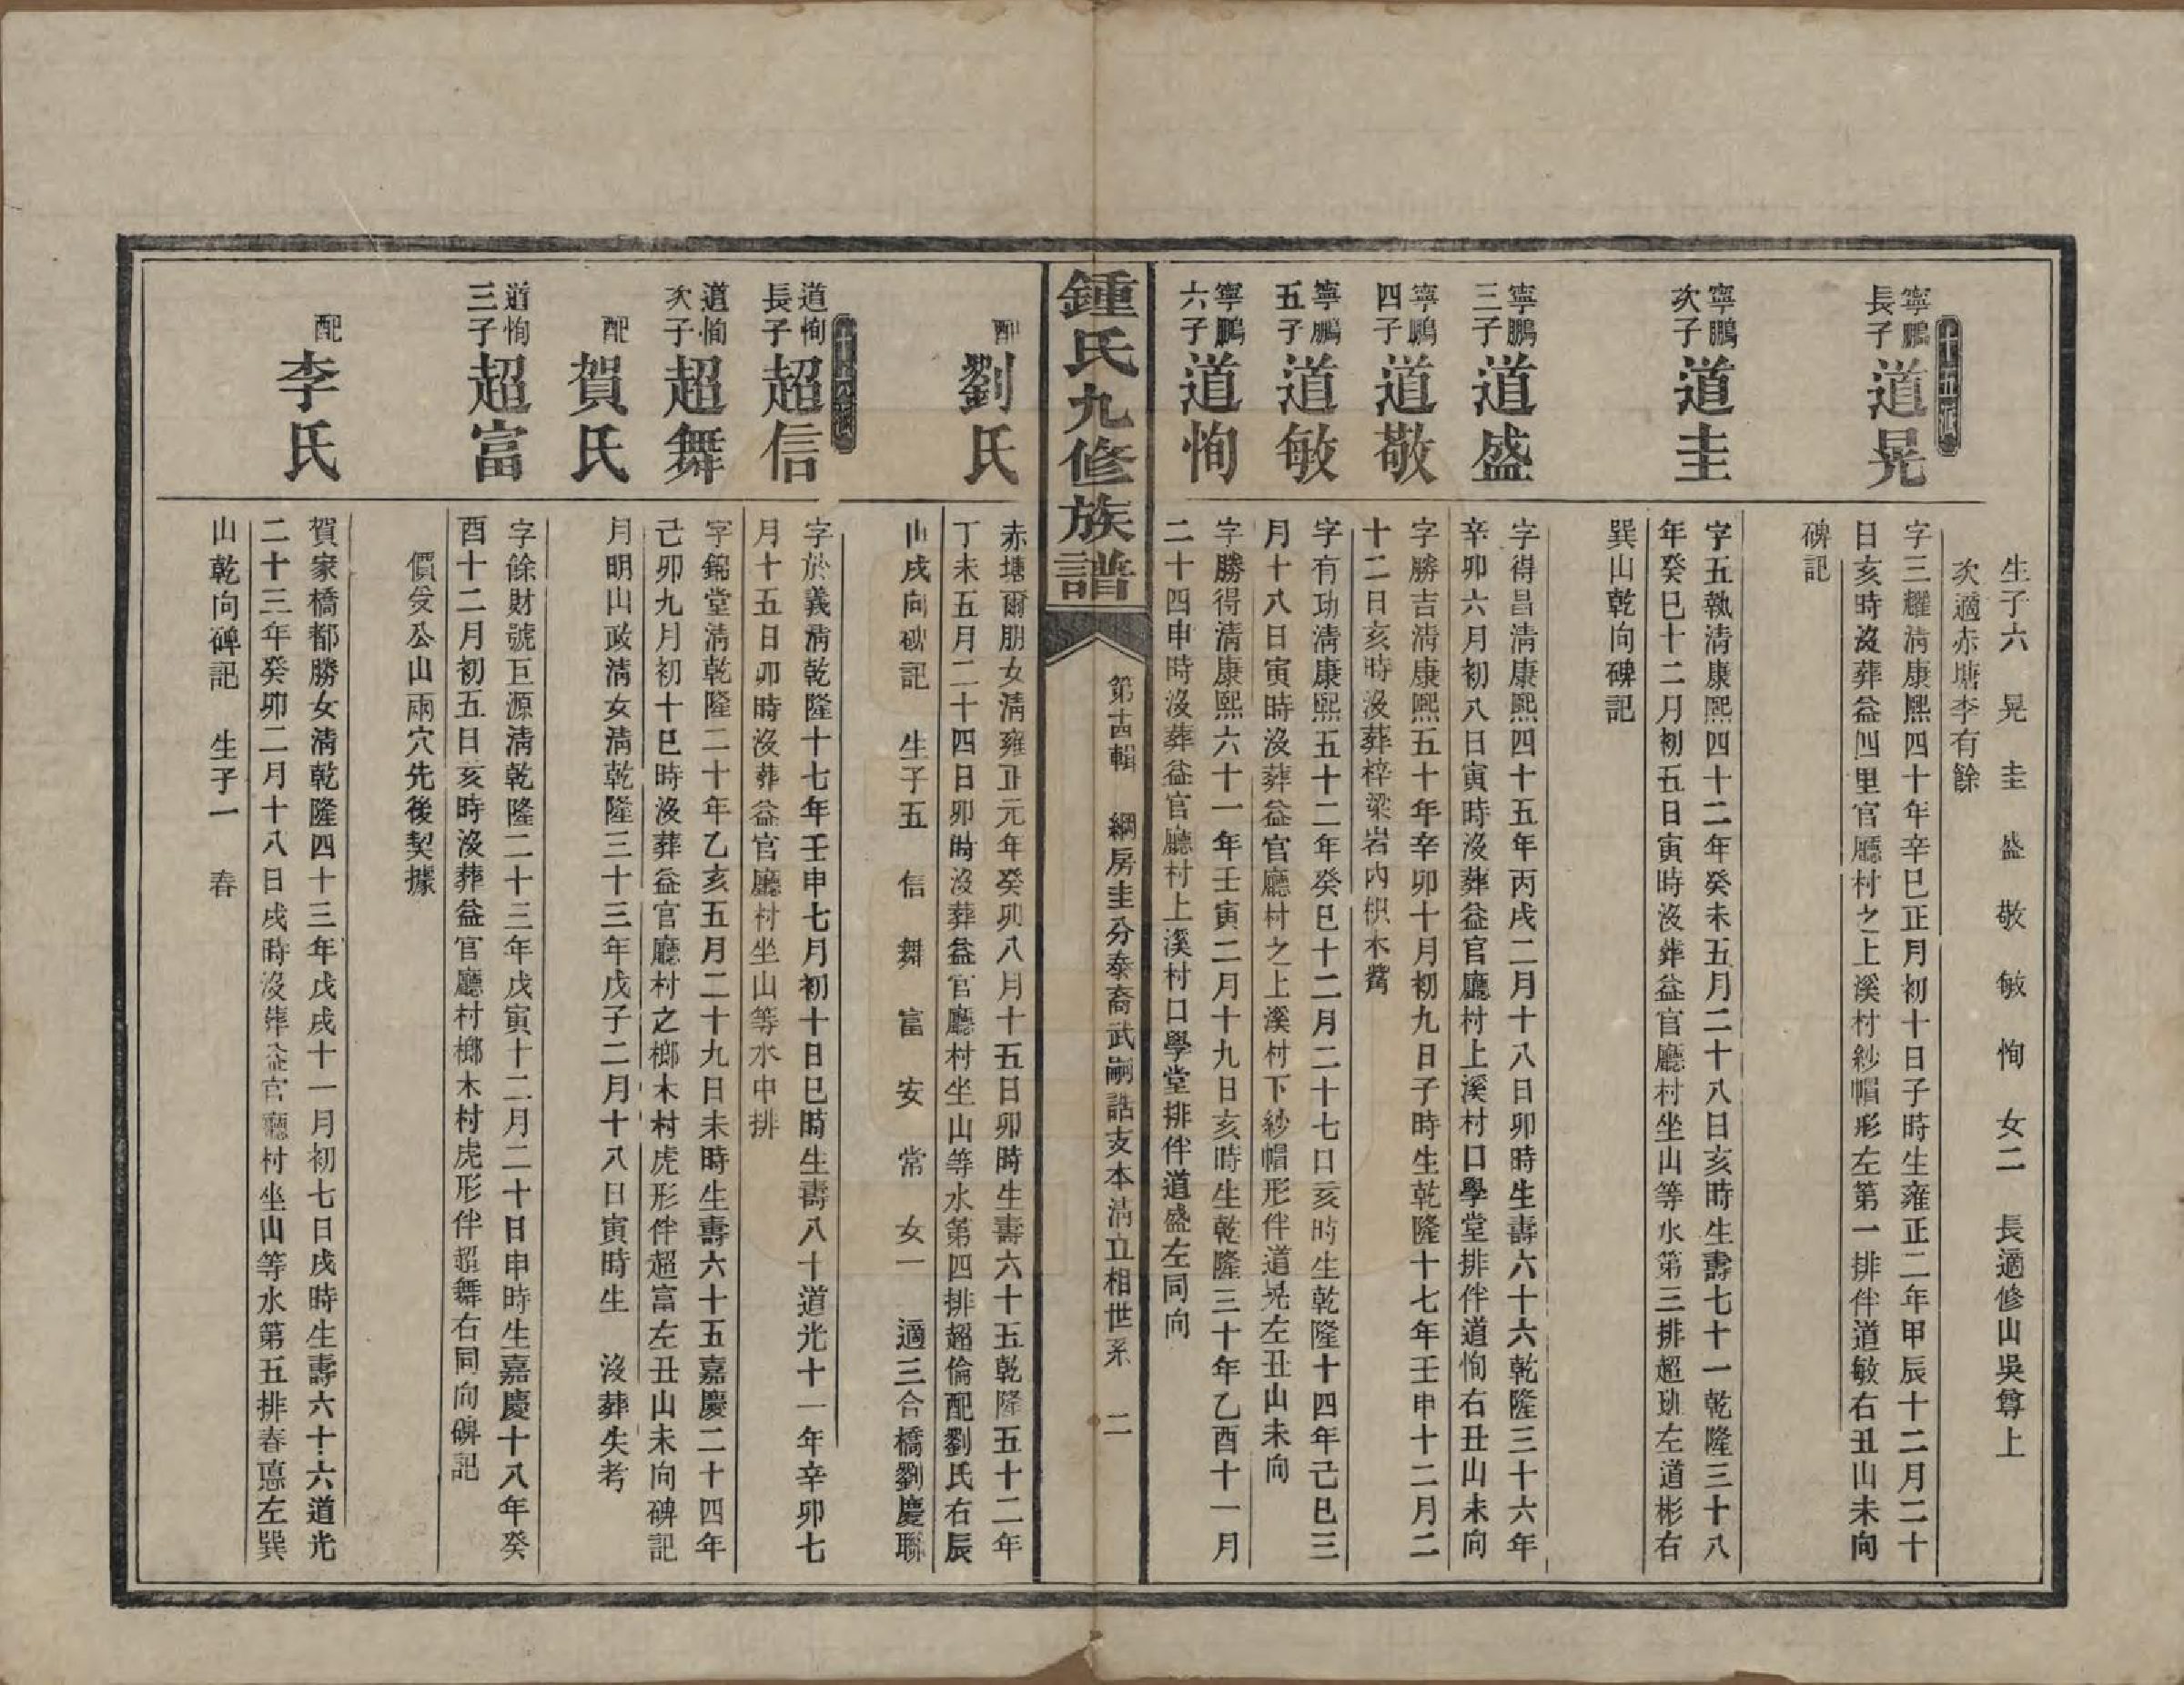 生子六　晃　圭　盛　敬　敏　恂　女二　長適修山吳尊上
次適赤塘李有餘
十五派
寧鵬長子道晃
字三耀清康熙四十年辛巳正月初十日子時生雍正二年甲辰十二月二十
日亥時沒葬益四里官廳村之上溪村紗帽形左第一排伴道敏右丑山未向
碑記
寧鵬次子道圭
字五執清康熙四十二年癸未五月二十八日亥時生壽七十一乾隆三十八
年癸巳十二月初五日寅時沒葬益官廳村坐山等水第三排超珖左道彬右
巽山乾向碑記
寧鵬三子道盛
字得昌清康熙四十五年丙戌二月十八日卯時生壽六十六乾隆三十六年
辛卯六月初八日寅時沒葬益官廳村上溪村口學堂排伴道恂右丑山未向
寧鵬四子道敬
字勝吉清康熙五十年辛卯十月初九日子時生乾隆十七年壬申十二月二
十二日亥時沒葬梓梁岩內枳木嘴
寧鵬五子道敏
字有功清康熙五十二年癸巳十二月二十七日亥時生乾隆十四年己巳三
月十八日寅時沒葬益官廳村之上溪村下紗帽形伴道晃左丑山未向
寧鵬六子道恂
字勝得清康熙六十一年壬寅二月十九日亥時生乾隆三十年乙酉十一月
二十四申時沒葬益官廳村上溪村口學堂排伴道盛左同向
鍾氏九修族譜
第十四輯　綱房圭分泰裔武嗣誥支本清立相世系　二
配劉氏
赤塘爾朋女清雍正元年癸卯八月十五日卯時生壽六十五乾隆五十二年
丁未五月二十四日卯時沒葬益官廳村坐山等水第四排超倫配劉氏右辰
山戌向碑記　生子五　信　舞　富　安　常　女一　適三合橋劉慶聯
十六派
道恂長子超信
字於義清乾隆十七年壬申七月初十日巳時生壽八十道光十一年辛卯七
月十五日卯時沒葬益官廳村坐山等水中排
道恂次子超舞
字錦堂清乾隆二十年乙亥五月二十九日未時生壽六十五嘉慶二十四年
己卯九月初十巳時沒葬益官廳村之榔木村虎形伴超富左丑山未向碑記
配賀氏
月明山政清女清乾隆三十三年戊子二月十八日寅時生　沒葬失考
道恂三子超富
字餘財號巨源清乾隆二十三年戊寅十二月二十日申時生嘉慶十八年癸
酉十二月初五日亥時沒葬益官廳村榔木村虎形伴超舞右同向碑記
價受公山兩穴先後契據
配李氏
賀家橋都勝女清乾隆四十三年戊戌十一月初七日戌時生壽六十六道光
二十三年癸卯二月十八日戌時沒葬益官廳村坐山等水第五排春憙左巽
山乾向碑記　生子一　春